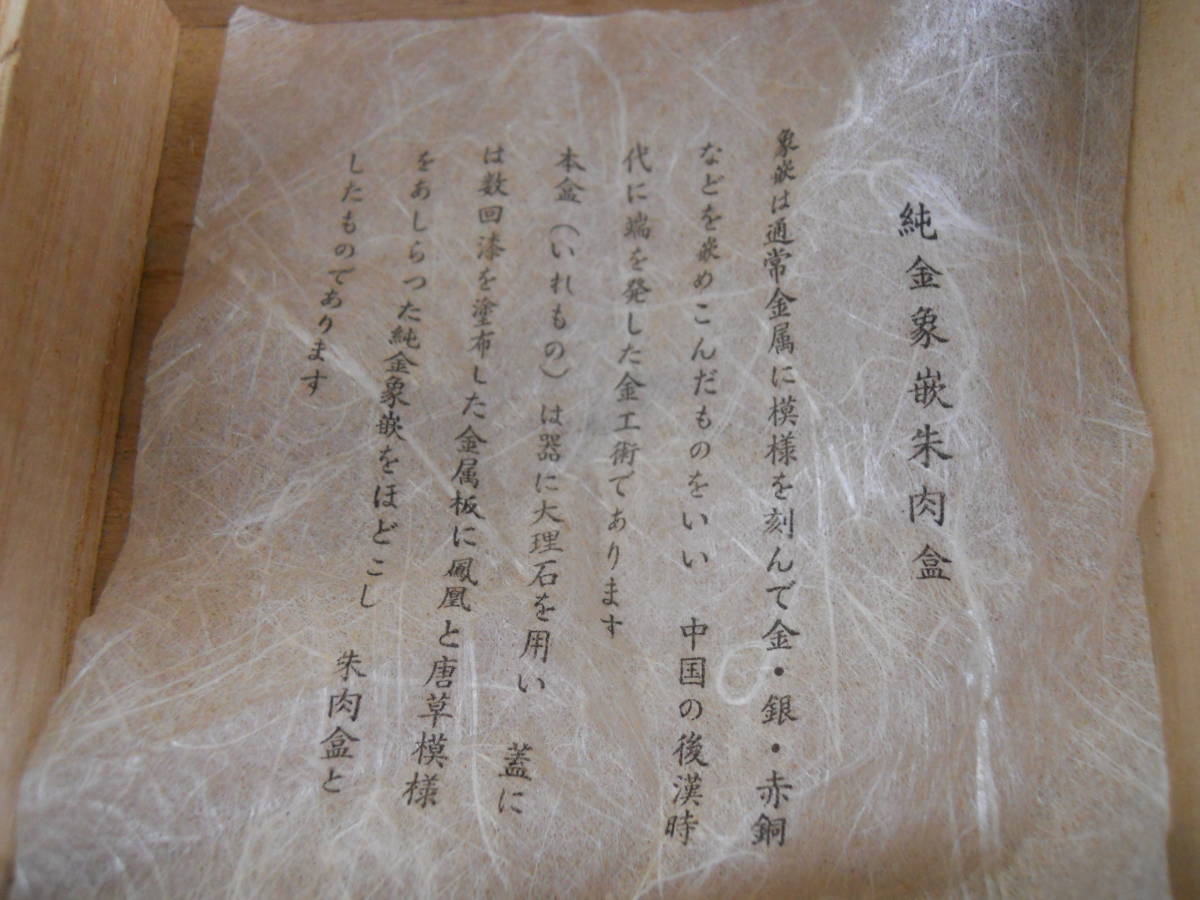 純金象嵌朱肉盒
象嵌は通常金属に模様を刻んで金・銀・赤銅
などを嵌めこんだものをいい　中国の後漢時
代に端を発した金工術であります
本盒（いれもの）は器に大理石を用い　蓋に
は数回漆を塗布した金属板に鳳凰と唐草模様
をあしらつた純金象嵌をほどこし　朱肉盒と
したものであります